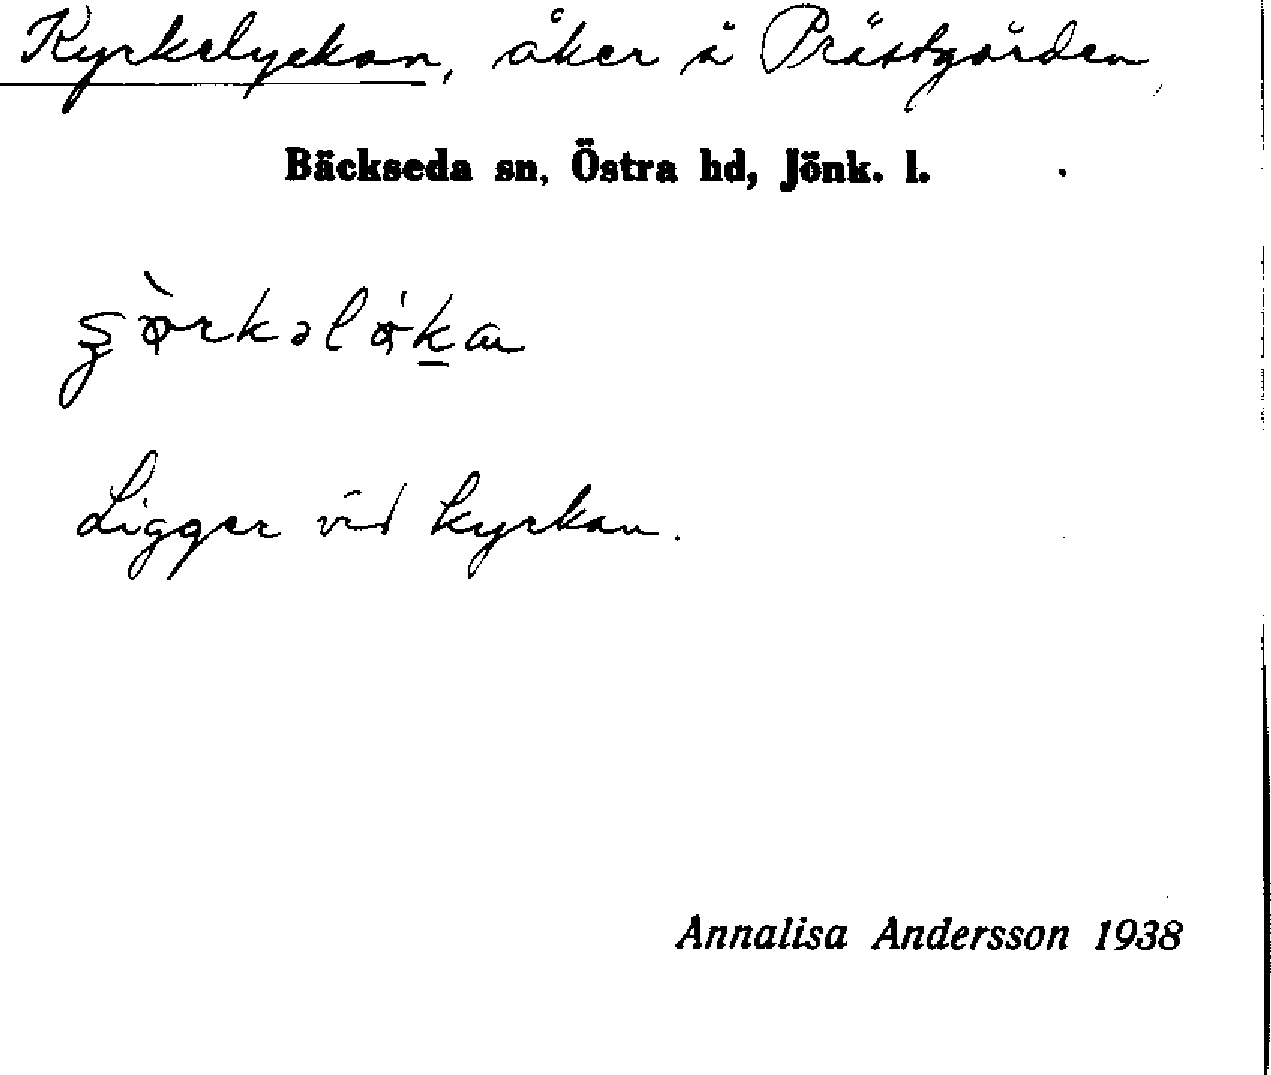 Kyrkelyckan, åker å Prästgården,
Bäckseda sn, Östra hd, Jönk. l.
Ligger vid kyrkan.
Annalisa Andersson 1938